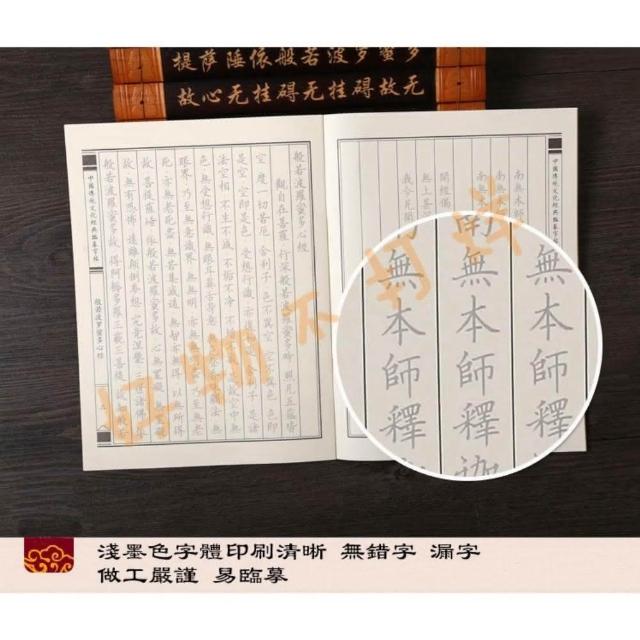 提萨陲依般若波罗蜜多
故心无挂碍无挂碍故无
中國傳統文化經典臨摹字帖
南無本師
南無本師
南無本師
開經偈
無上甚
我今見聞
無本師釋
南無本師釋迦
無本師釋
般若波羅蜜多心經
觀自在菩薩 行深般若波羅蜜多時 照見五蘊皆
空 度一切苦厄 舍利子 色不異空 空不異色 色即
是空 空即是色 受想行識 亦復 是諸
法空相 不生不滅 不垢不淨 不 空中無
色 無受想行識 無眼耳鼻舌身意
眼界 乃至無意識界 無無明 亦 無老
死 亦無老死盡 無苦集滅道 無智亦無得 以無所得
故 菩提薩埵 依般若波羅蜜多故 心無罣礙
故 無有恐怖 遠離顛倒夢想 究竟涅槃 三 諸佛
般若波羅蜜多故 得阿耨多羅三藐三菩提 故
中國傳統文化經典臨摹字帖
般若波羅蜜多心經
淺墨色字體印刷清晰 無錯字 漏字
做工嚴謹 易臨摹